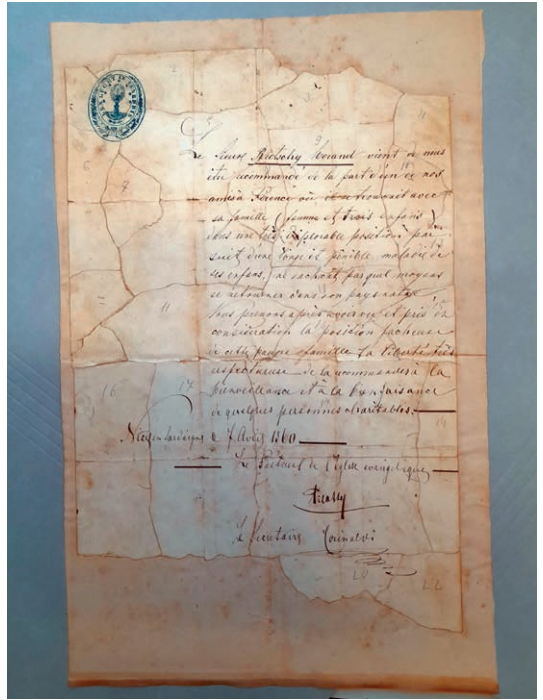 Le sieur Morand vient de nous
été recommandé de la part d'un de nos
amis à où il se trouvait avec
sa famille (femme et trois enfans)
dans une très déplorable position par
suite d'une longue et pénible maladie de
ses enfans, ne sachant par quel moyens
se retourner dans son pays natal
Nous prenons après avoir vu et pris en
considération la position facheuse
de cette pauvre famille la liberté très
respectueuse de la recommander à la
bienveillance et à la
de quelques personnes charitables.
Nice en Sardaigne le 7 Avril 1860
Le de l'Eglise evangelique
Le Secrétaire